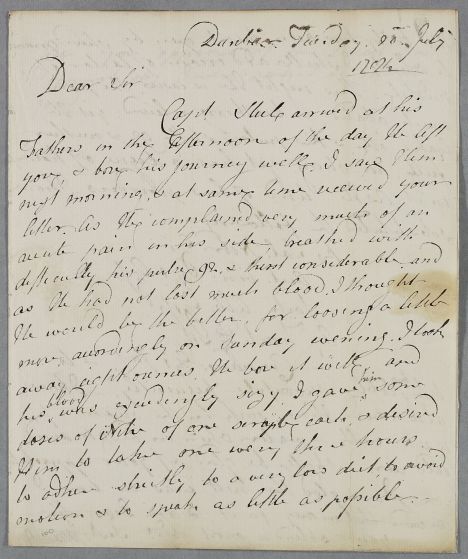 Dunbar Tuesday 8th July
Dear Sir
Capt arrived at his
Fathers in the Afternoon of the day He left
you, & bore his journey well. I saw Him
next morning, & at same time received your
letter. As He complained very much of an
acute pain in his side, breathed with
difficulty, his pulse 98. & thirst considerable and
as He had not lost much blood, I thought
He would be the better for loosing a little
more, accordingly on Sunday evening, I took
away eight ounces. He bore it well and
his blood was exceedingly sizy. I gave him some
doses of Nitre of one scruple each, & desired
Him to take one every three hours
to adhere strictly to a very low diet to avoid
motion & to speak as little as possible.